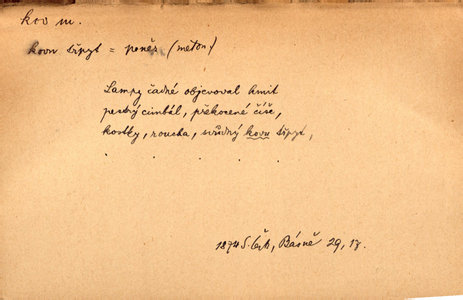 kov m.
kovu třpyt = peněz (meton)
Lampy čadné objevoval kmit
pestrý cimbál, překocené číše,
kostky, roucha, svůdný kovu třpyt,
. . . . .
1874 S. Čch, Básně 29, 17.